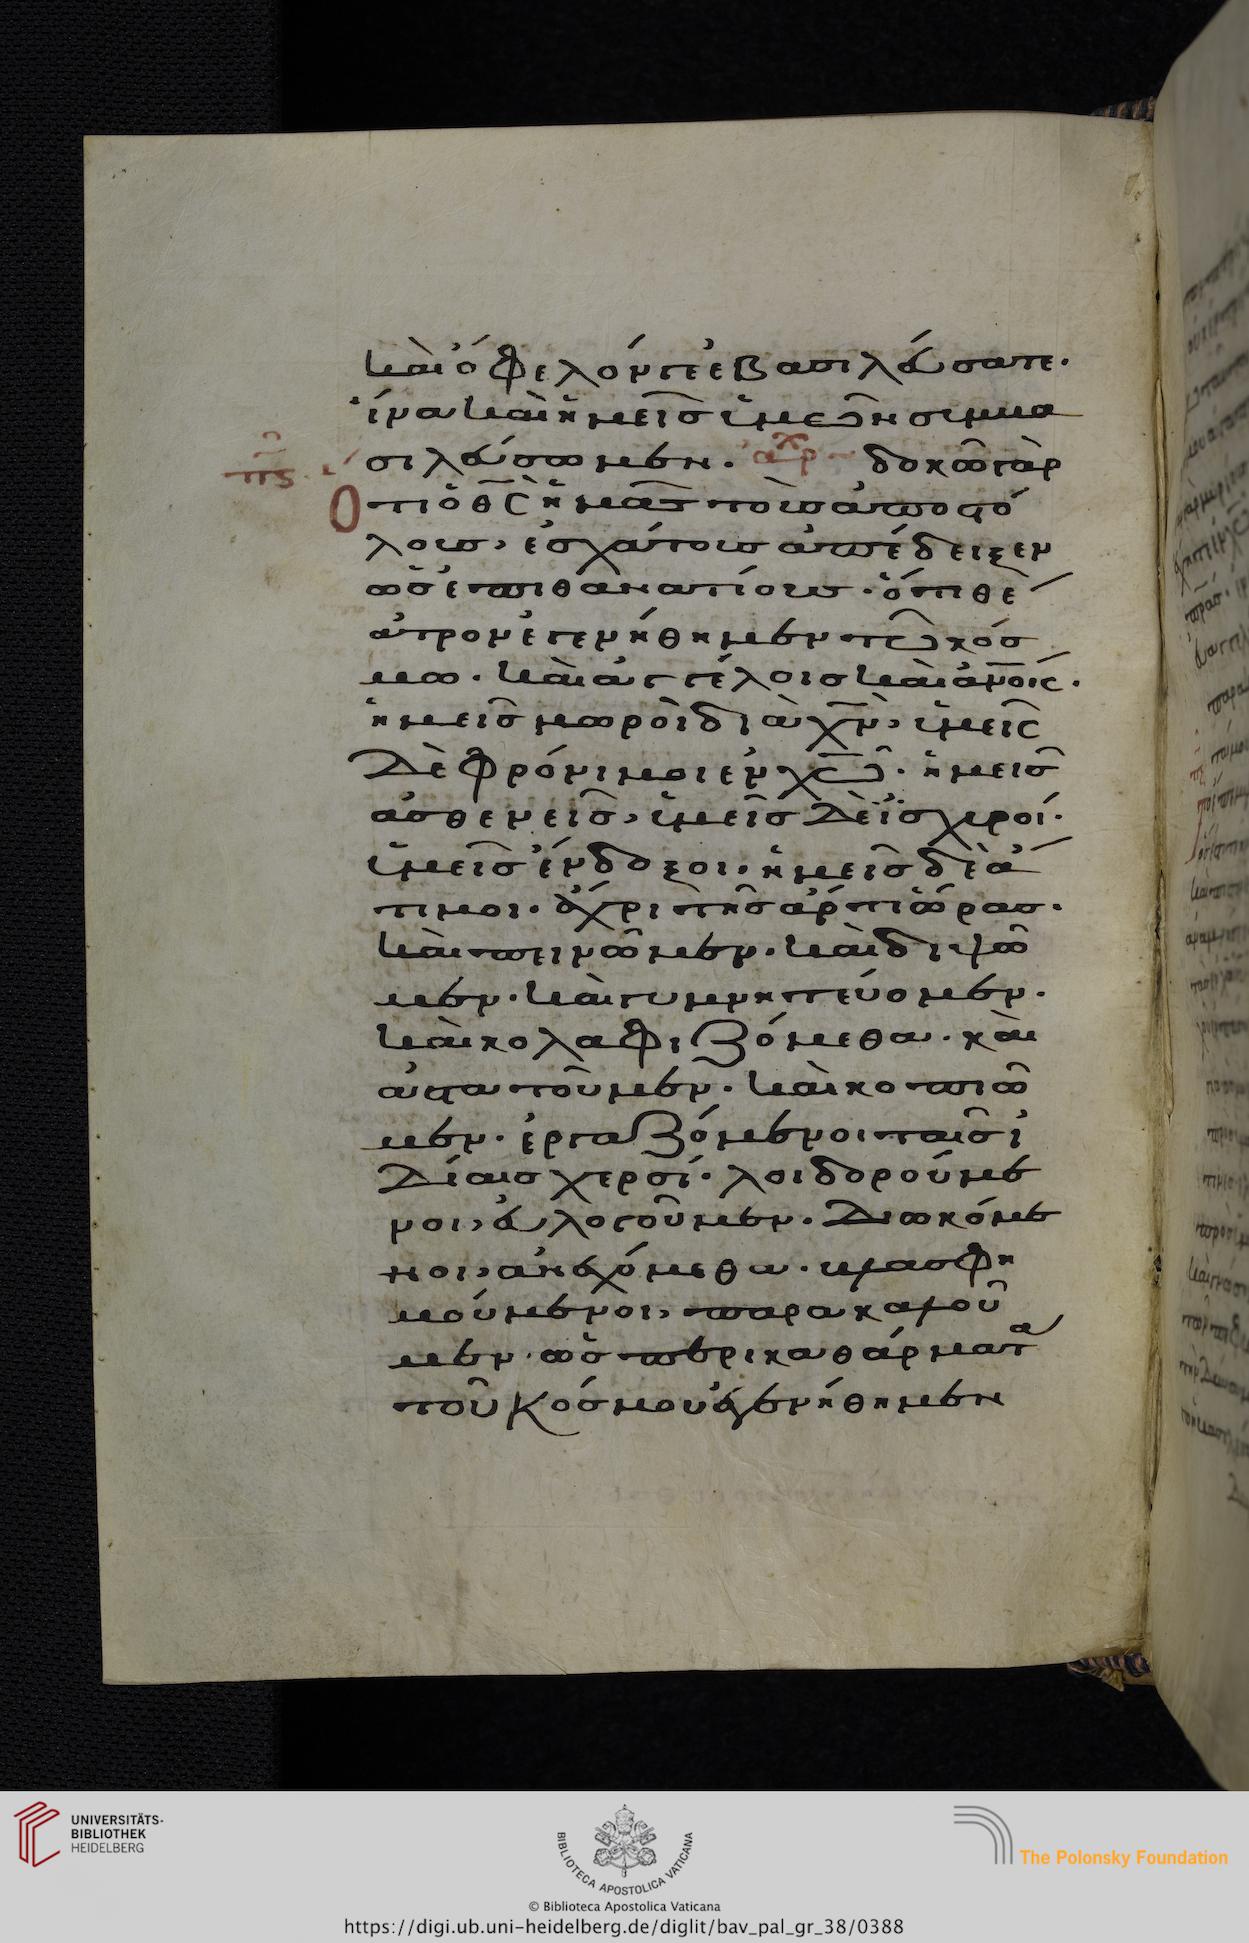 καὶ ὄφελόν γε ἐβασιλεύσατε·
ἵνα καὶ ἡμεῖς ὑμῖν συμβα
σιλεύσωμεν. ἀρχ δοκῶ γὰρ
Ὁτι ὁ θς ἡμᾶς τοὺς ἀποστό
λους, ἐσχάτους ἀπέδειξεν
ὡς ἐπιθανατίους· ὅτι θέ
ατρον ἐγενήθημεν τῶ κόσ
μω. καὶ ἀγγέλοις καὶ ἀνοις.
ἡμεῖς μωροὶ διὰ χν, ὑμεῖς
δὲ φρόνιμοι ἐν χω. ἡμεῖς
ἀσθενεῖς, ὑμεῖς δὲ ἰσχυροί.
ὑμεῖς ἔνδοξοι. ἡμεῖς δὲ ἄ
τιμοι. ἄχρι τῆς ἄρτι ὥρας.
καὶ πεινῶμεν. καὶ διψῶ
μεν. καὶ γυμνητεύομεν.
καὶ κολαφιζόμεθα. καὶ
ἀστατοῦμεν. καὶ κοπιῶ
μεν. ἐργαζόμενοι ταῖς ἰ
δίαις χερσί. λοιδορούμε
νοι, εὐλογοῦμεν. διωκόμε
νοι, ἀνεχόμεθα. βλασφη
μούμενοι, παρακαλοῦ
μεν. ὡς περικαθάρματα
τοῦ κόσμου ἐγενήθημεν
UNIVERSITÄTS-
BIBLIOTHEK
HEIDELBERG
BIBLIOTECA APOSTOLICA VATICANA
The Polonsky Foundation
© Biblioteca Apostolica Vaticana
https://digi.ub.uni-heidelberg.de/diglit/bav_pal_gr_38/0388